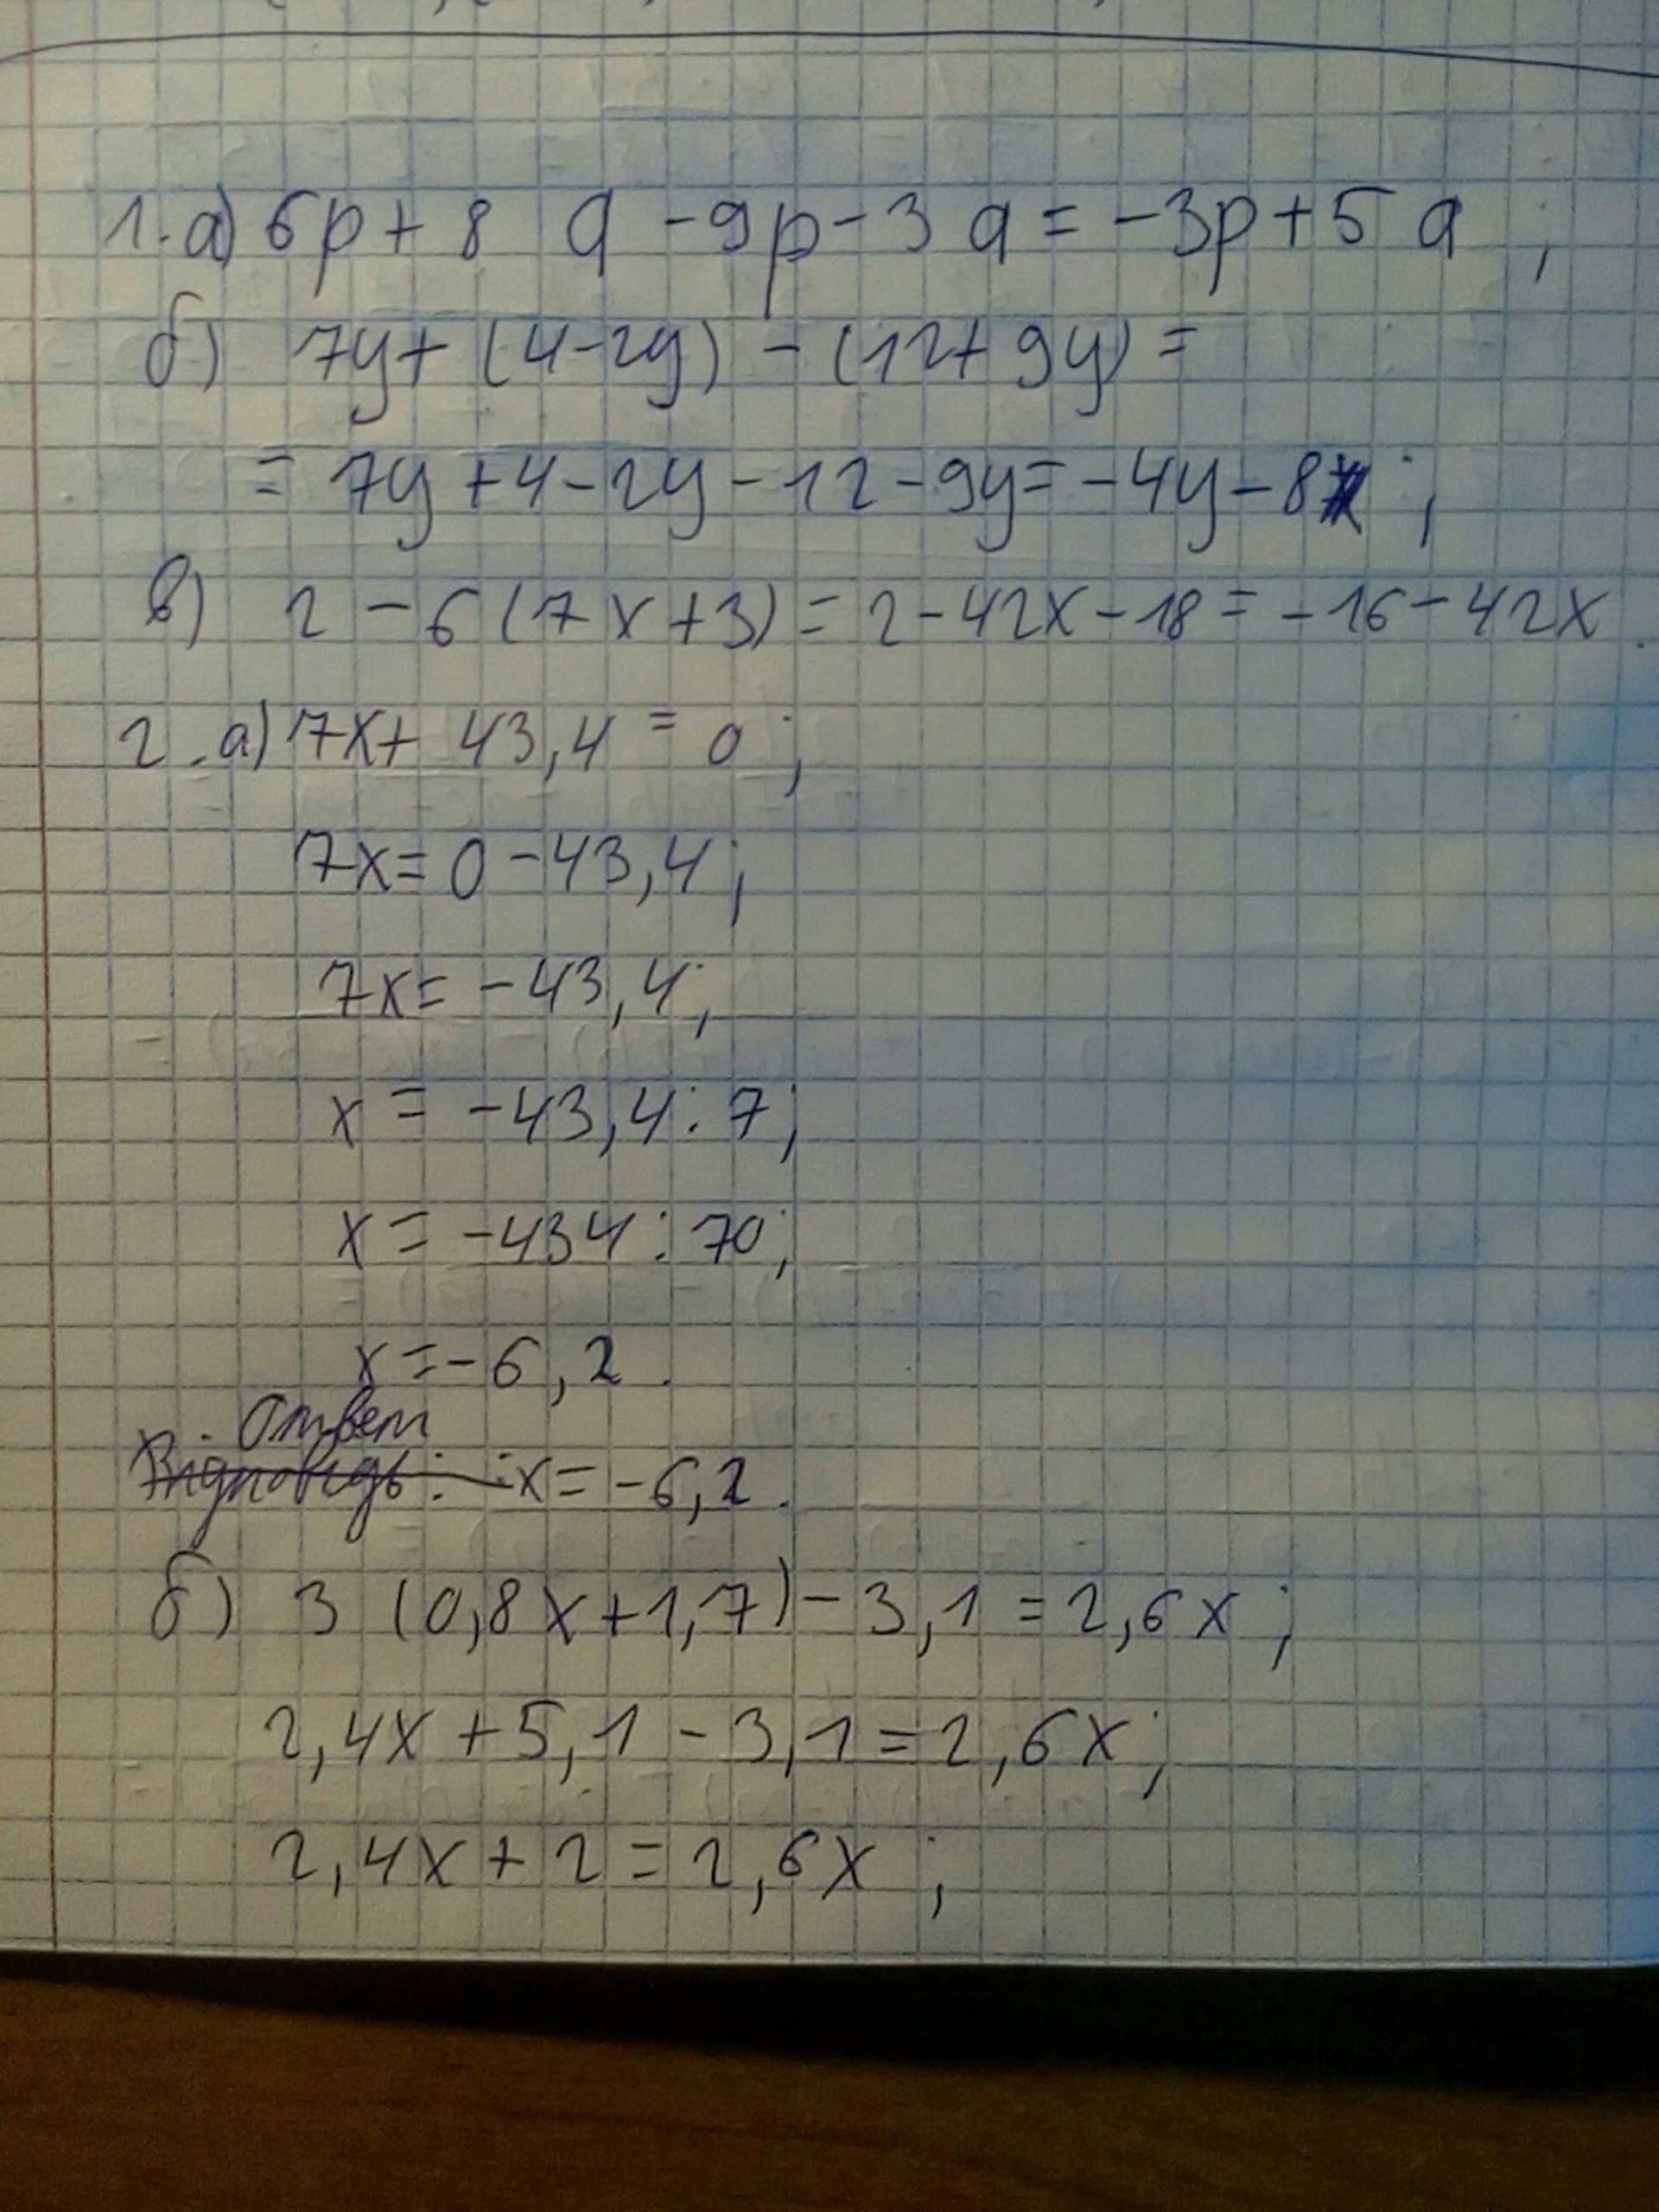 1. а) 6p + 8 q - 9p - 3 q = -3p + 5 q ;
б) 7y + (4-2y) - (12+9y) =
= 7y + 4 - 2y - 12 - 9y = -4y - 8 ;
в) 2 - 6(7x+3) = 2 - 42x - 18 = -16 - 42x .
2. а) 7x + 43,4 = 0 ;
7x = 0 - 43,4 ;
7x = -43,4 ;
x = -43,4 : 7 ;
x = -434 : 70 ;
x = -6,2 .
Ответ
Відповідь: x = -6,2 .
б) 3 (0,8x + 1,7) - 3,1 = 2,6x ;
2,4x + 5,1 - 3,1 = 2,6x ;
2,4x + 2 = 2,6x ;